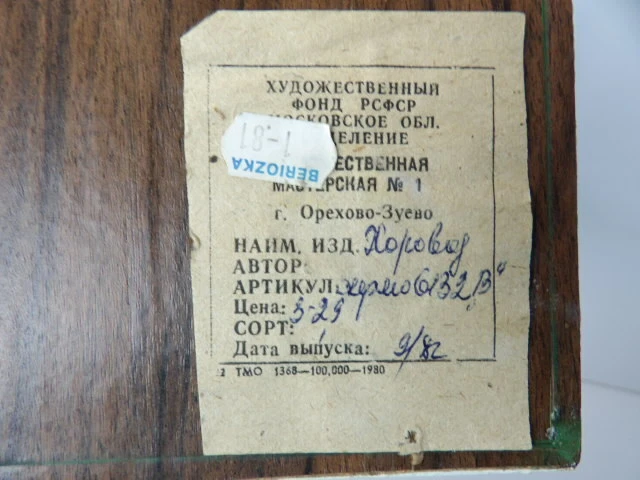 ХУДОЖЕСТВЕННЫЙ
ФОНД РСФСР
МОСКОВСКОЕ ОБЛ.
ДЕЛЕНИЕ
ЕСТВЕННАЯ
МАСТЕРСКАЯ № 1
г. Орехово-Зуево
НАИМ. ИЗД. Хоровод
АВТОР
АРТИКУЛ: 6132В"
Цена: 3-29
СОРТ:
Дата выпуска: 9/82
ТМО 1368—100,000—1980
1-81
BERIOZKA